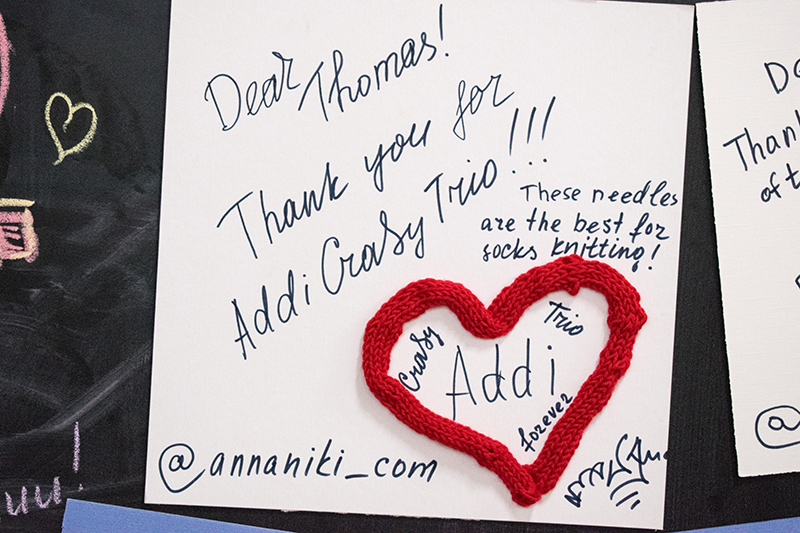 Dear Thomas!
Thank you for
Addi Crasy Trio!!!
These needles
are the best for
socks knitting!
Crasy
Trio
Addi
forever
@annaniki_com
Thank
of t